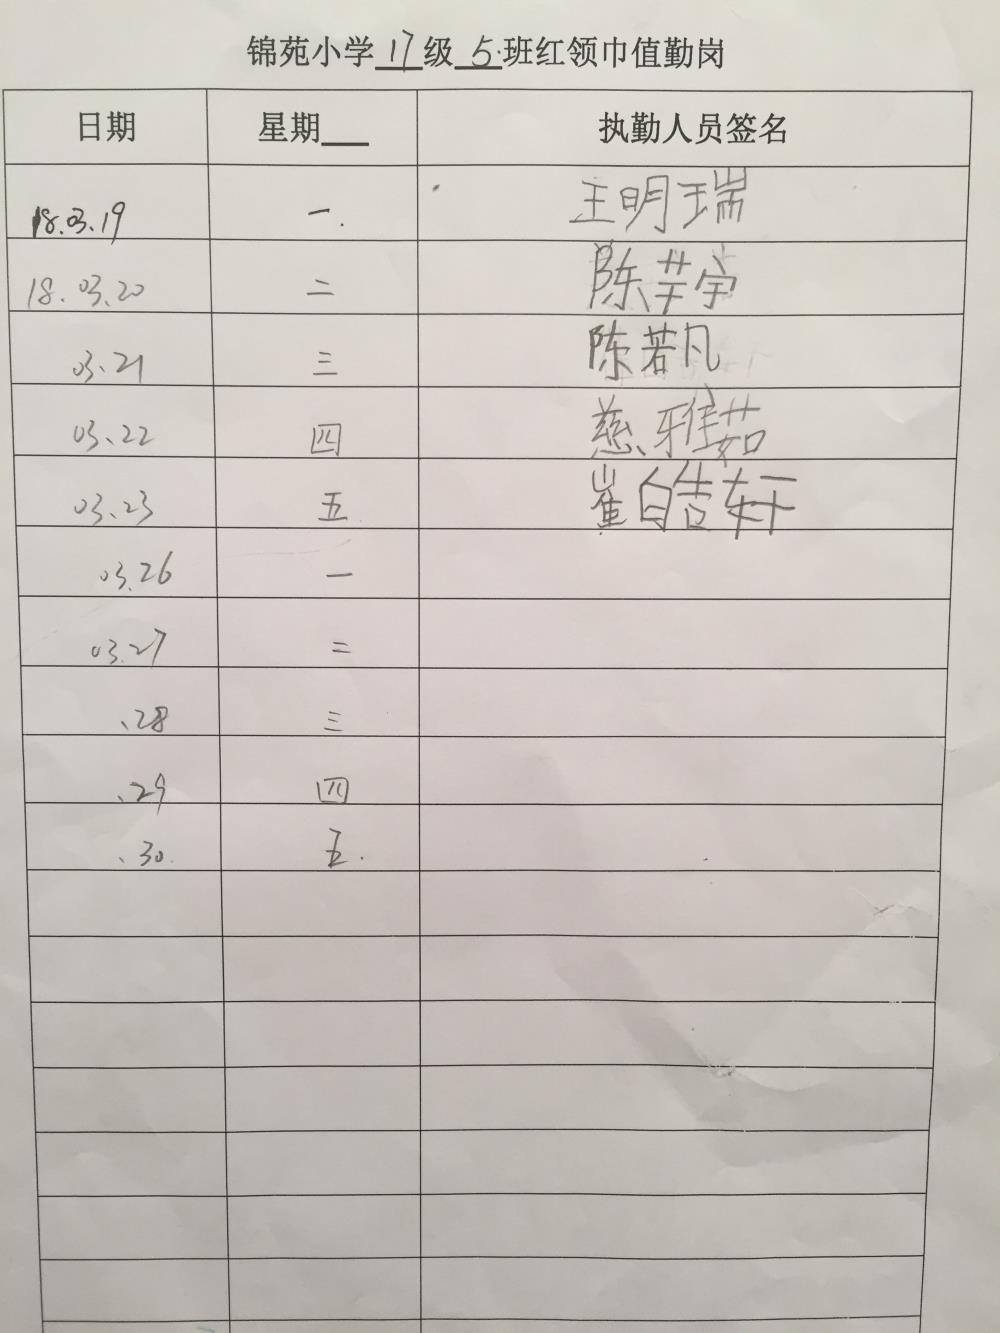 锦苑小学17级5班红领巾值勤岗
日期 星期 执勤人员签名
18.03.19 一. 王明瑞
18.03.20 二 陈芊宇
03.21 三 陈若凡
03.22 四 慈雅茹
03.23 五 崔皓轩
03.26 一
03.27 二
.28 三
.29 四
.30 五.